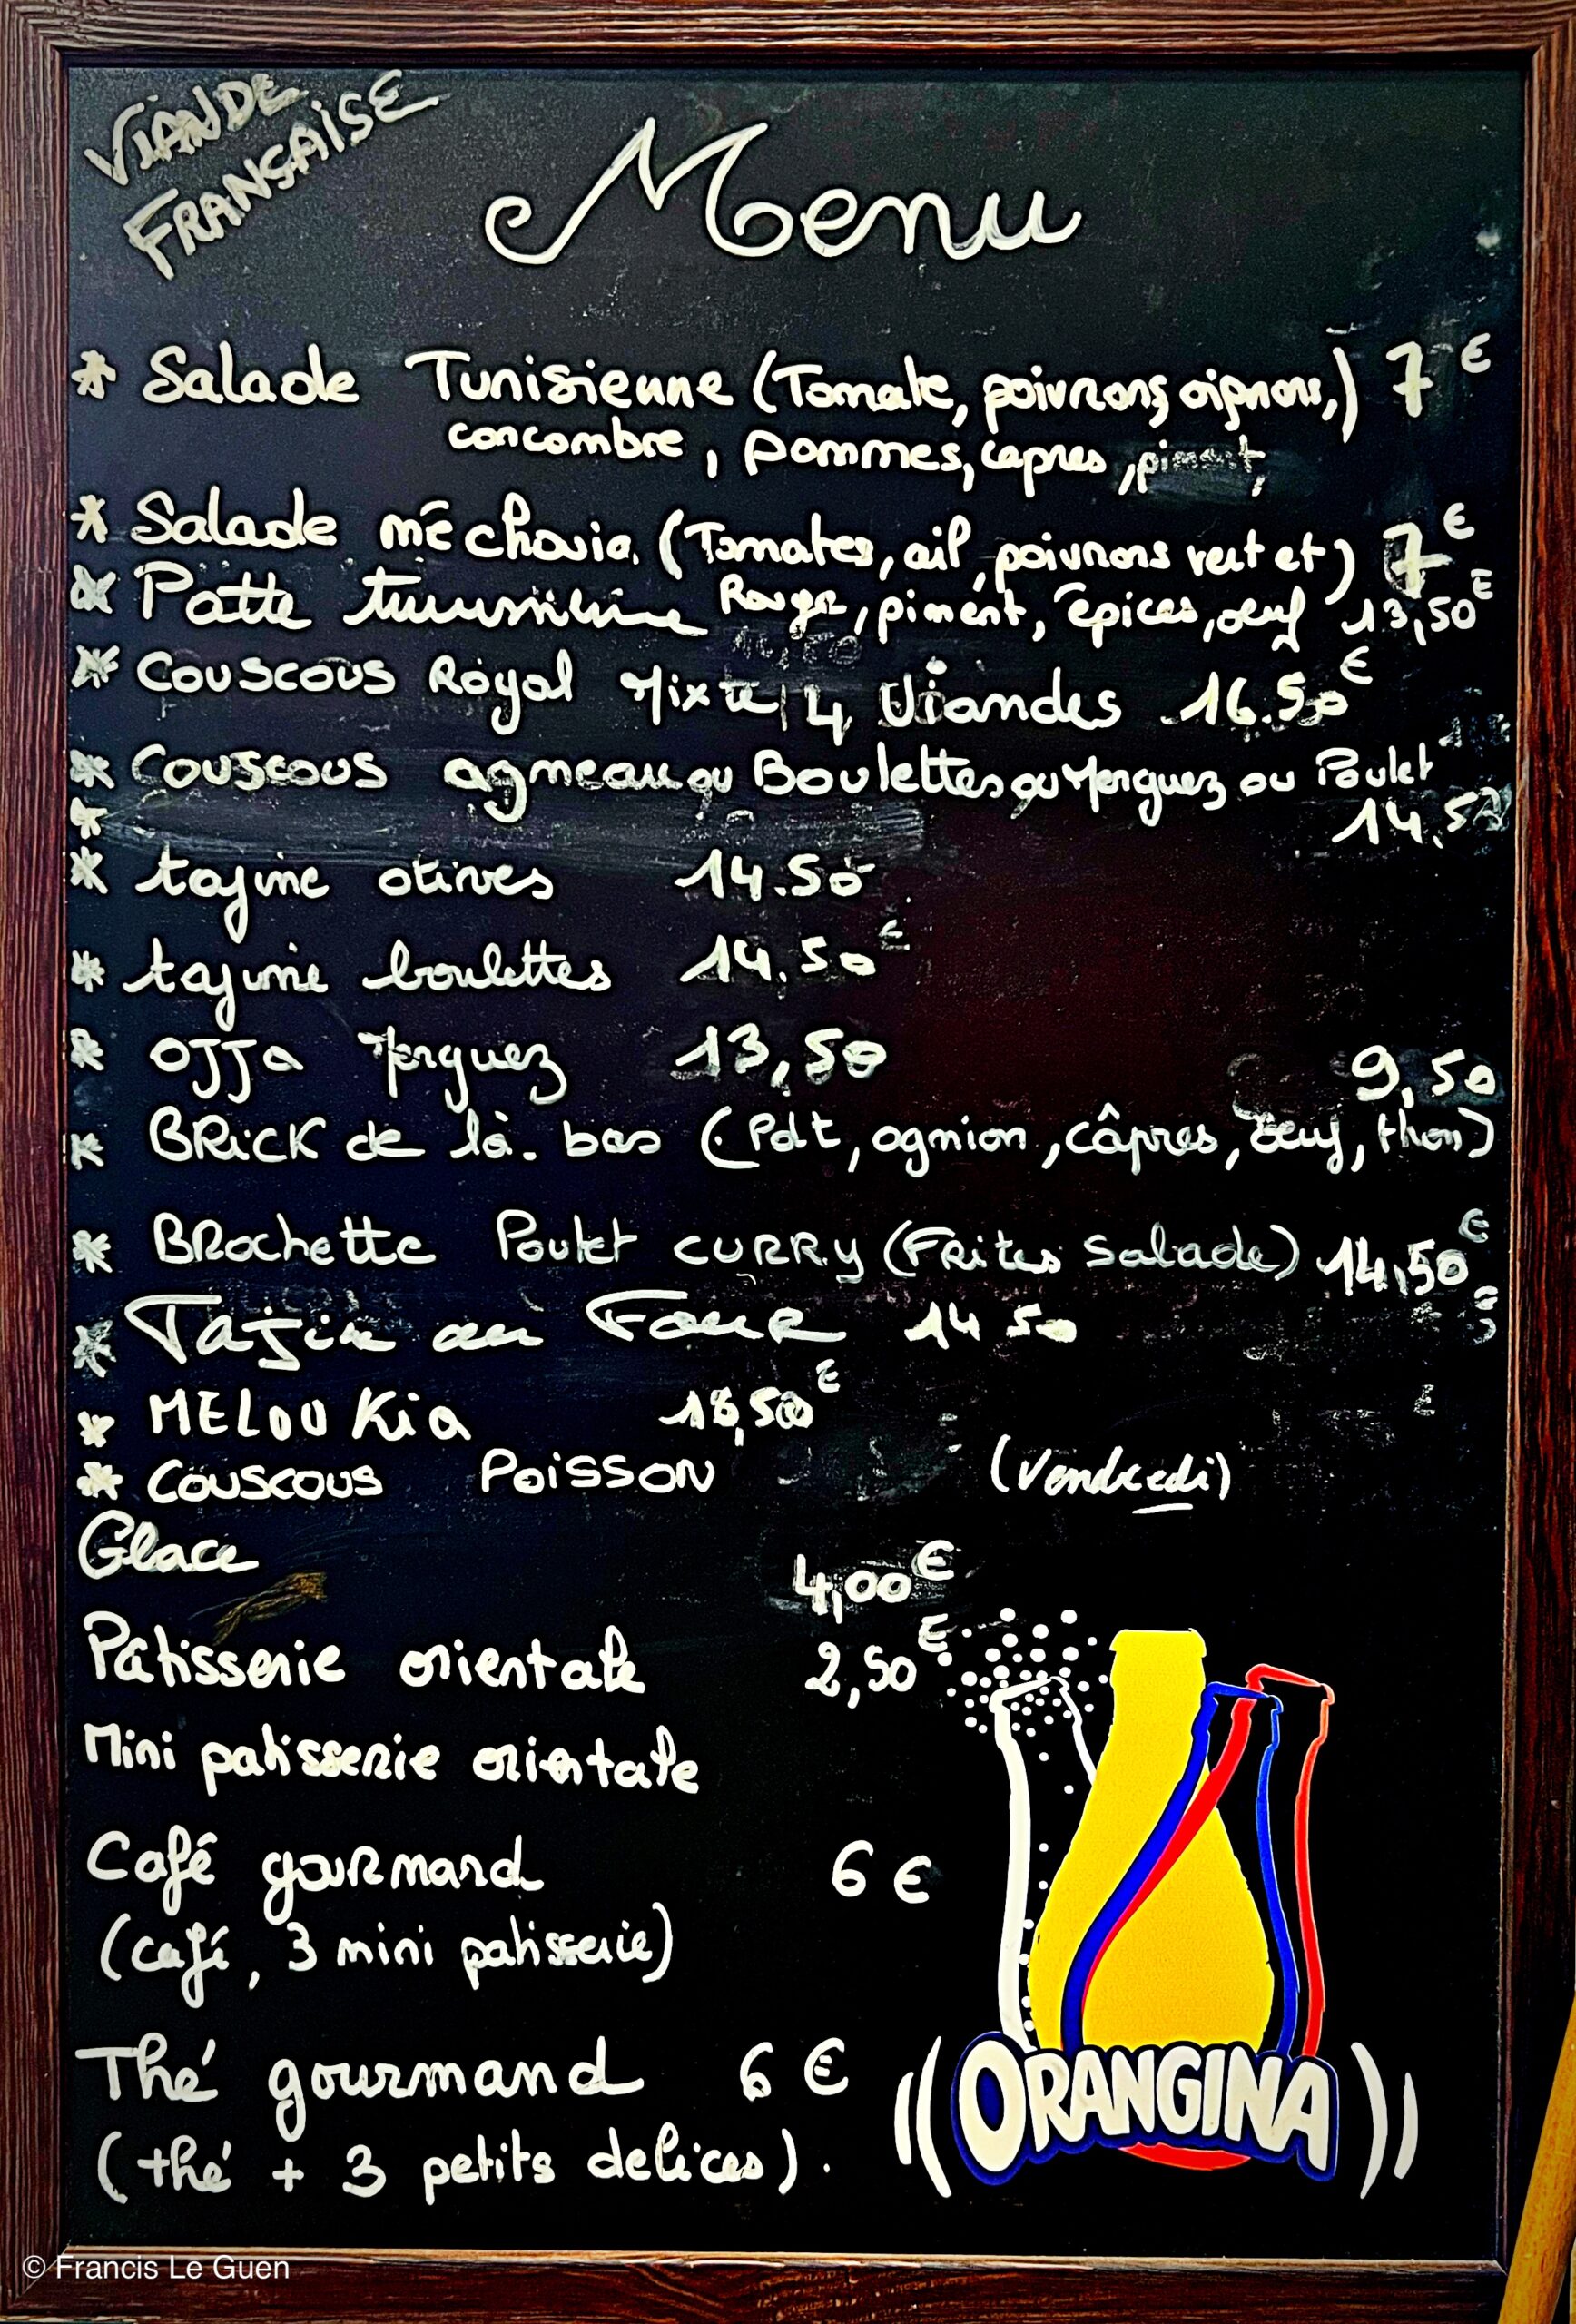 VIANDE
FRANSAISE
Menu
* Salade Tunisienne (Tomate, poivrons, oignons,) 7€
concombre, pommes, capres, piment,
* Salade méchouia (Tomates, ail, poivrons vert et) 7€
* Patte tunisienne Rouge, piment, épices, oeuf 13,50€
* Couscous Royal Mixte 4 Viandes 16.50€
* Couscous agneau ou Boulettes ou Merguez ou Poulet
* 14,50
* tajine olives 14.50
* tajine boulettes 14.50€
* OJJa Merguez 13,50
9,50
* BRICK de là-bas (Pdt, ognion, câpres, oeuf, thon)
* BRochette Poulet CURRY (FRites Salade) 14,50€
* Tajin au Four 14 50
* MELOUKia €
* Couscous POiSSON (Vendredi)
Glace 4,00€
Patisserie orientale 2,50€
Mini patisserie orientale
Café gourmand 6€
(café, 3 mini patisserie)
Thé gourmand 6€
(thé + 3 petits delices).
ORANGINA
© Francis Le Guen